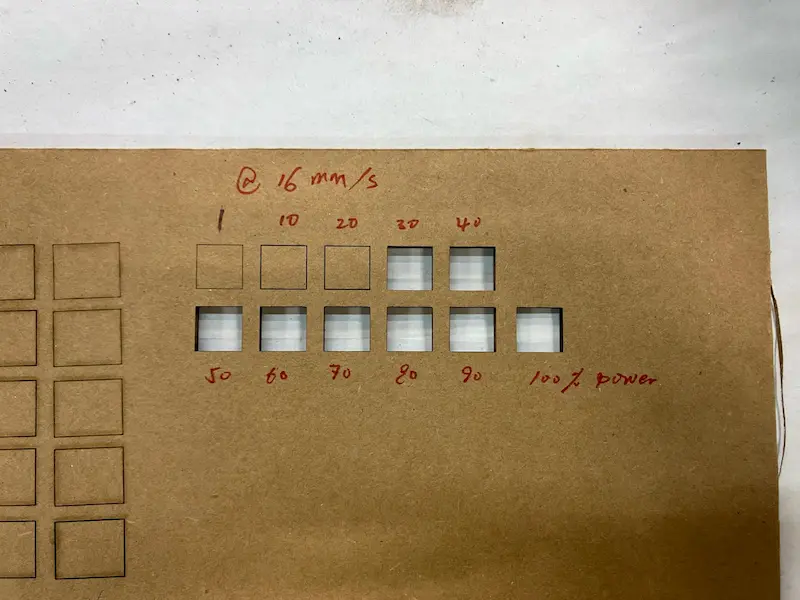 @ 16 mm/s
1 10 20 30 40
50 60 70 80 90 100% power